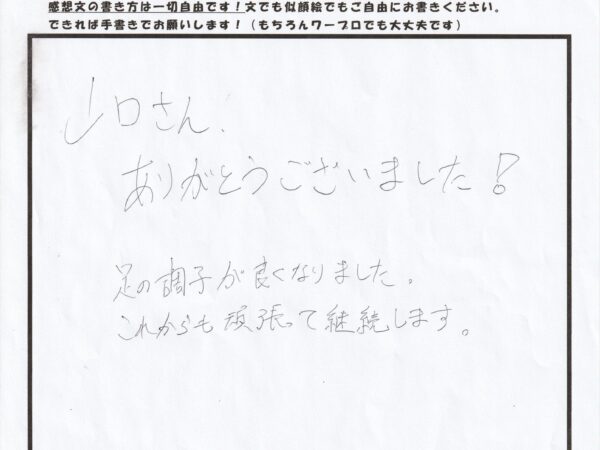 感想文の書き方は一切自由です！文でも似顔絵でもご自由にお書きください。
できれば手書きでお願いします！（もちろんワープロでも大丈夫です）
山口さん、
ありがとうございました！
足の調子が良くなりました。
これからも頑張って継続します。